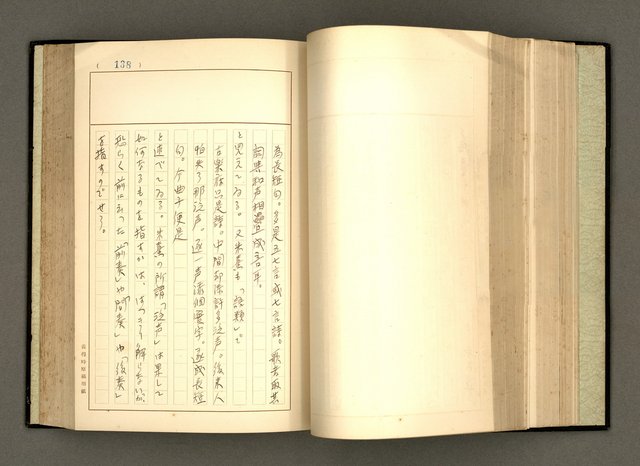 (138)
為長短句。多是五七言或七言詩。歌者取其
詞與和声相畳成音耳。
と見えてゐる。又朱熹も「語類」で
古楽府只是詩。中間却添許多泛声。後来人
怕失了那泛声。逐一声添個実字。遂成長短
句。今曲子便是
と述べてゐる。朱熹の所謂「泛声」は果して
如何なるものを指すかは、はつきり解らないが、
恐らく前に云つた「前奏」や「間奏」や「後奏」
を指すのだらう。